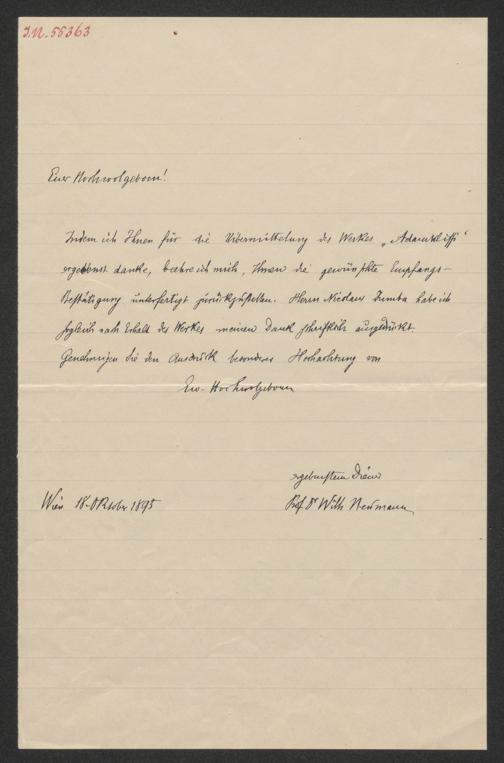 I.N. 55363
Euer Hochwolgeborn!
Indem ich Ihnen für die Übermittelung des Werkes „Adamklissi“
ergebenst danke, beehre ich mich, Ihnen die gewünschte Empfangs-
Bestätigung unterfertigt zurückzustellen. Herrn Nicolaus Dumba habe ich
sogleich nach Erhalt des Werkes meinen Dank schriftlich ausgedrückt.
Genehmigen Sie den Ausdruck besonderer Hochachtung von
Ew. Hochwolgeborn
ergebenstem Diener
Wien 18. Oktober 1895
Prof. Dr Wilh Neumann